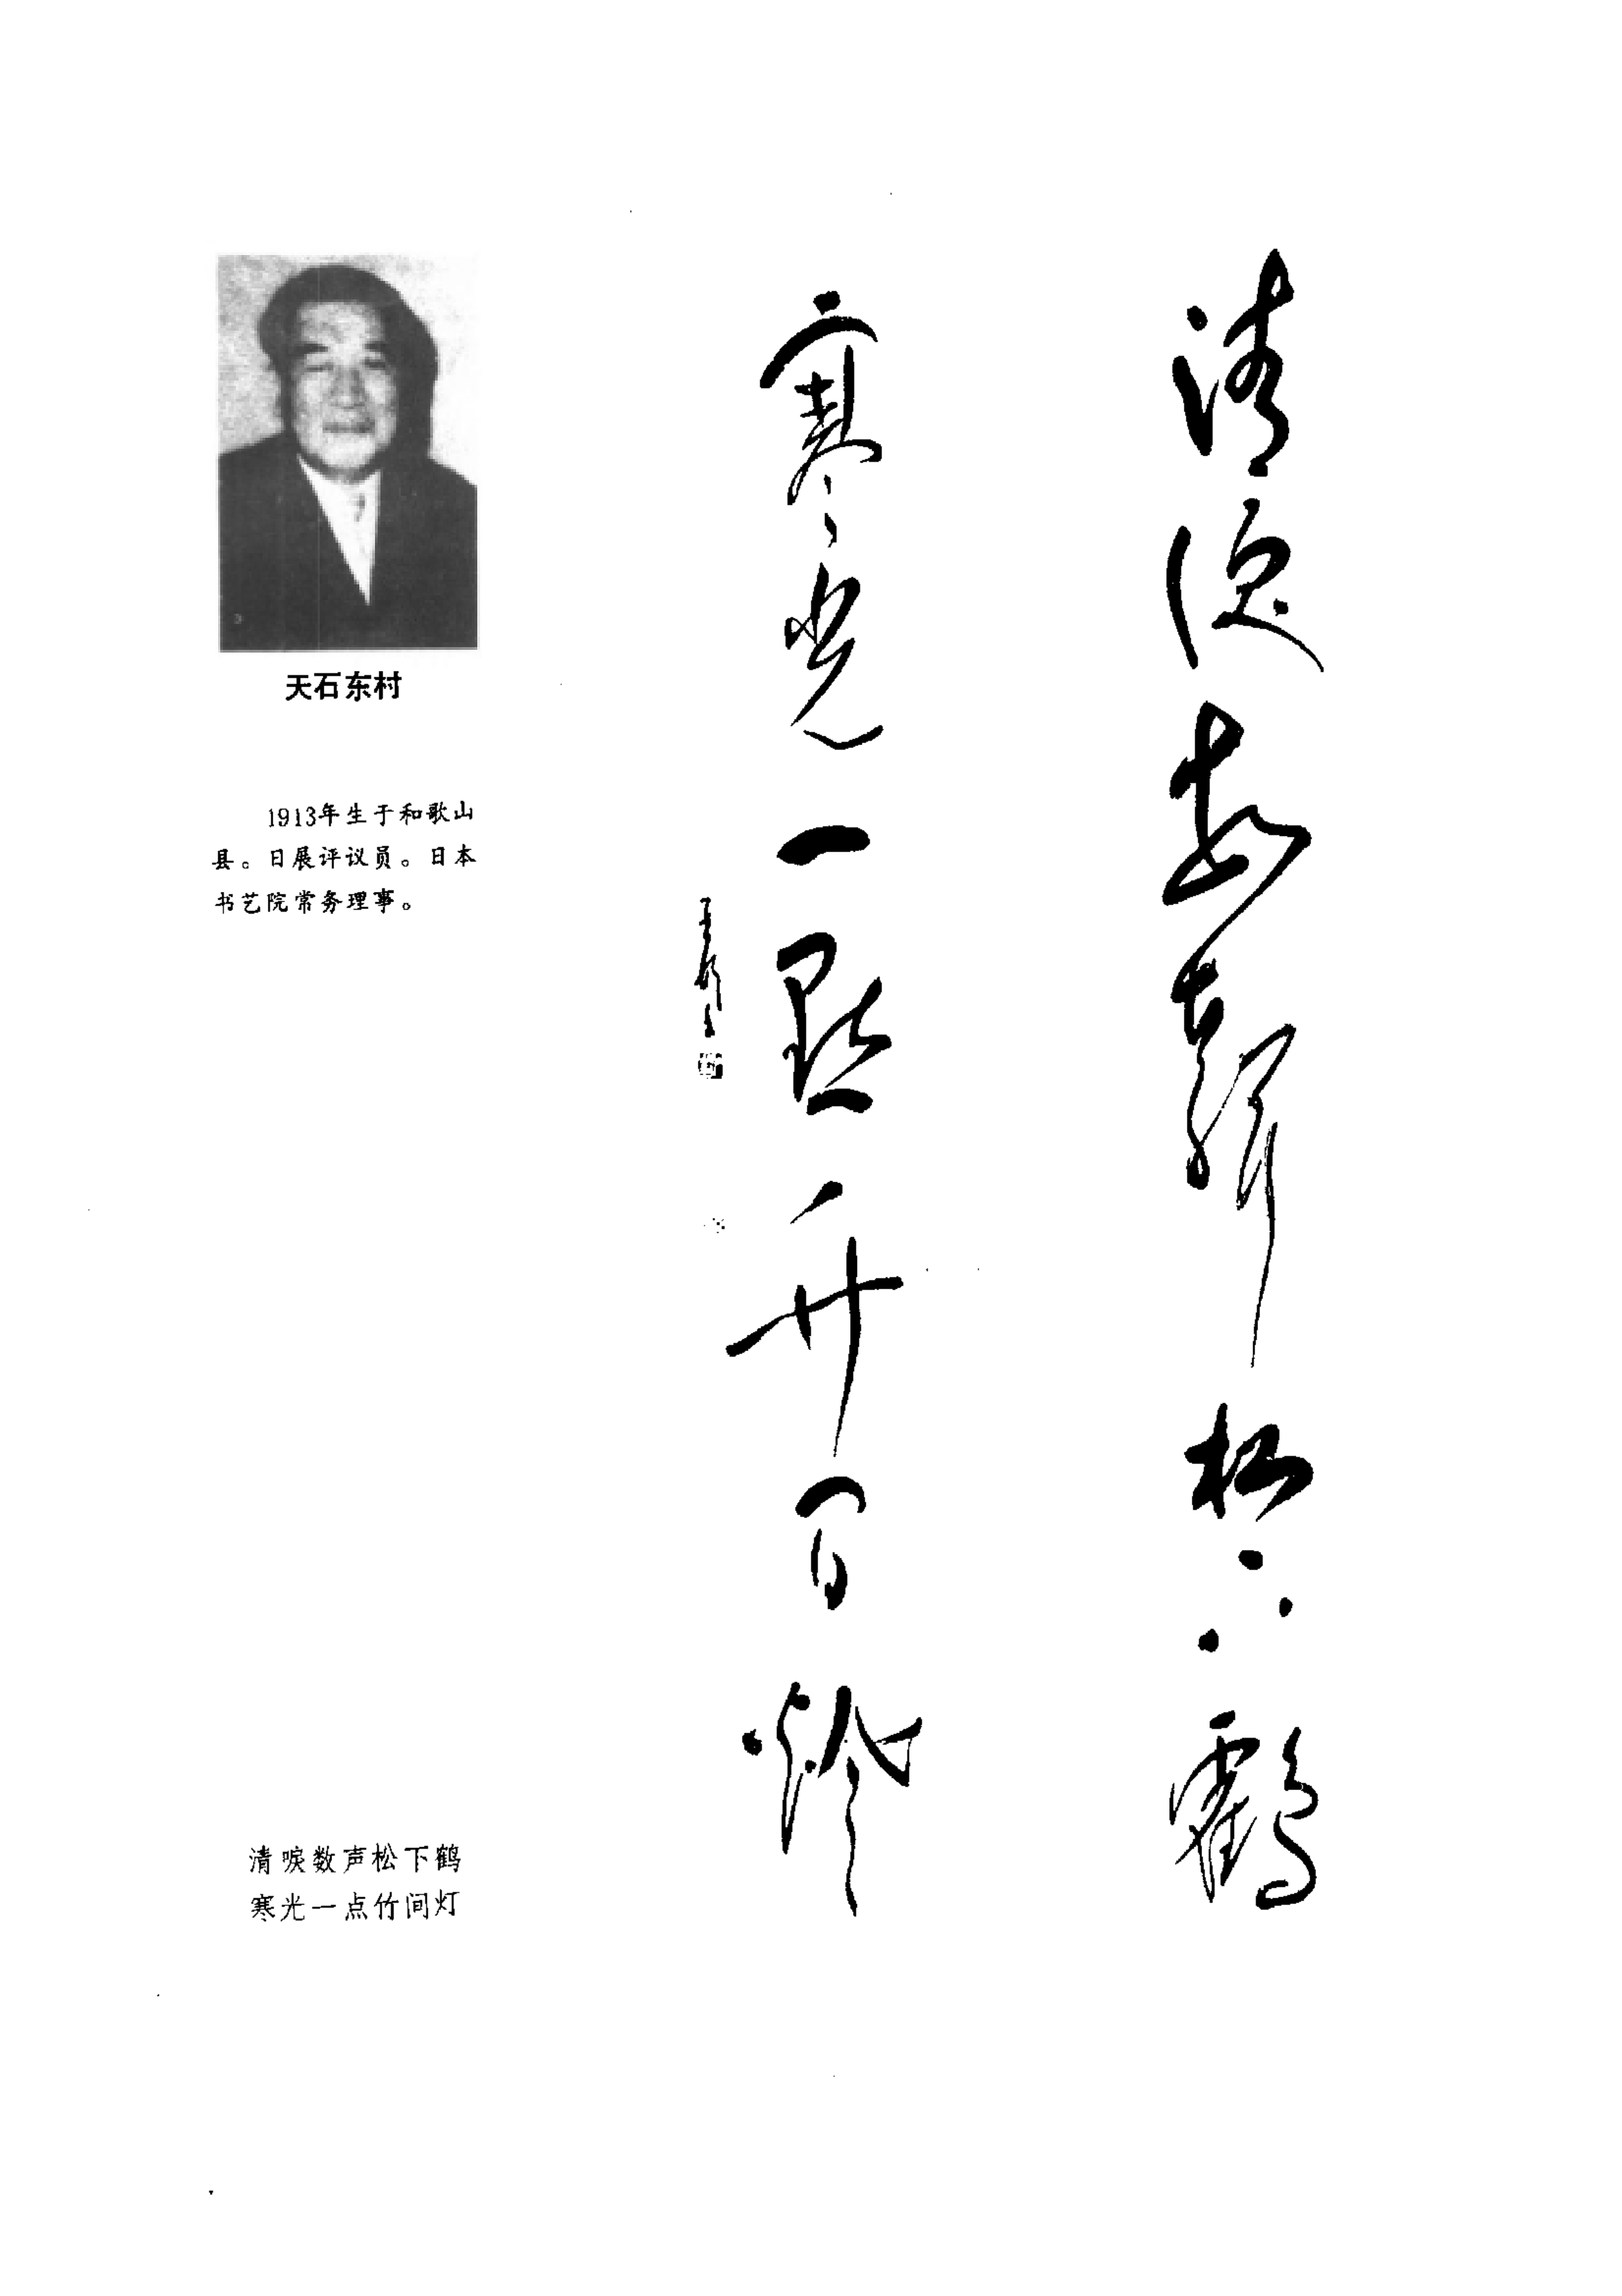 清唳数聲松下鶴
寒光一點竹間燈
天石东村
1913年生于和歌山
县。日展评议员。日本
书艺院常务理事。
清唳数声松下鹤
寒光一点竹间灯